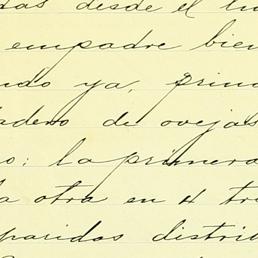 das desde el
empadre bien
ndo ya,
adero de ovejas
o; la primera
a otra en 4 tr
paridas distrib